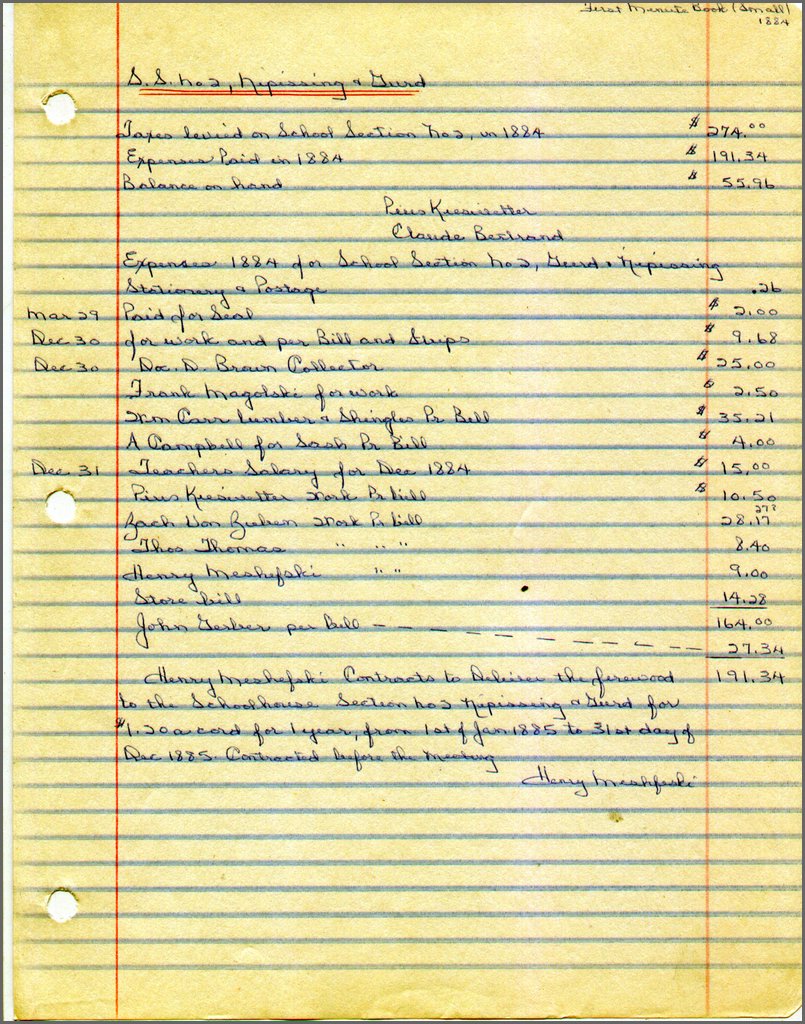 First Minute Book (Small)
1884
S.S. No 2, Nipissing & Gurd
Taxes levied on School Section No 2, in 1884 $ 274.00
Expenses Paid in 1884 $ 191.34
Balance on hand $ 55.96
Pius Kiesivetter
Claude Bertrand
Expenses 1884 for School Section No 2, Gurd & Nipissing
Stationary & Postage .26
Mar 29 Paid for Seal $ 2.00
Dec 30 for work and per Bill and Srips $ 9.68
Dec 30 Doc. D. Brown Collector $ 25.00
Frank Magolski for work $ 2.50
Wm Carr lumber & Shingles Pr Bill $ 35.21
A Campbell for Sash Pr Bill $ 4.00
Dec 31 Teachers Salary for Dec 1884 $ 15.00
Pius Kiesivetter Work Pr bill $ 10.50
Zach Von Zuben Work Pr bill 28.17
27?
Thos Thomas " " " 8.40
Henry Meshefski " " 9.00
Store bill 14.28
John Gerber per Bill 164.00
27.34
Henry Meshefski Contracts to Deliver the firewood 191.34
to the Schoolhouse Section No 2 Nipissing & Gurd for
$1.20 a cord for 1 year, from 1st of Jan 1885 to 31st day of
Dec 1885. Contracted before the meeting
Henry Meshfeski